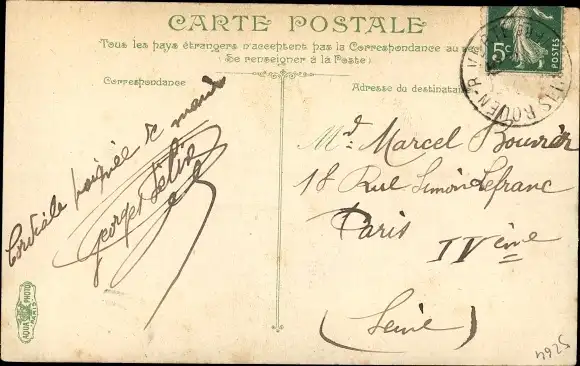 CARTE POSTALE
Tous les pays étrangers n'acceptent pas la Correspondance au
(Se renseigner à la Poste)
Correspondance
Adresse du destinataire
Cordiale poignée de main
Georges
Mr Marcel Bouvier
18 Rue Simon Lefranc
Paris IVème
(Seine)
5c
POSTES
ROUEN
AQUA PHOTO
PARIS
4925